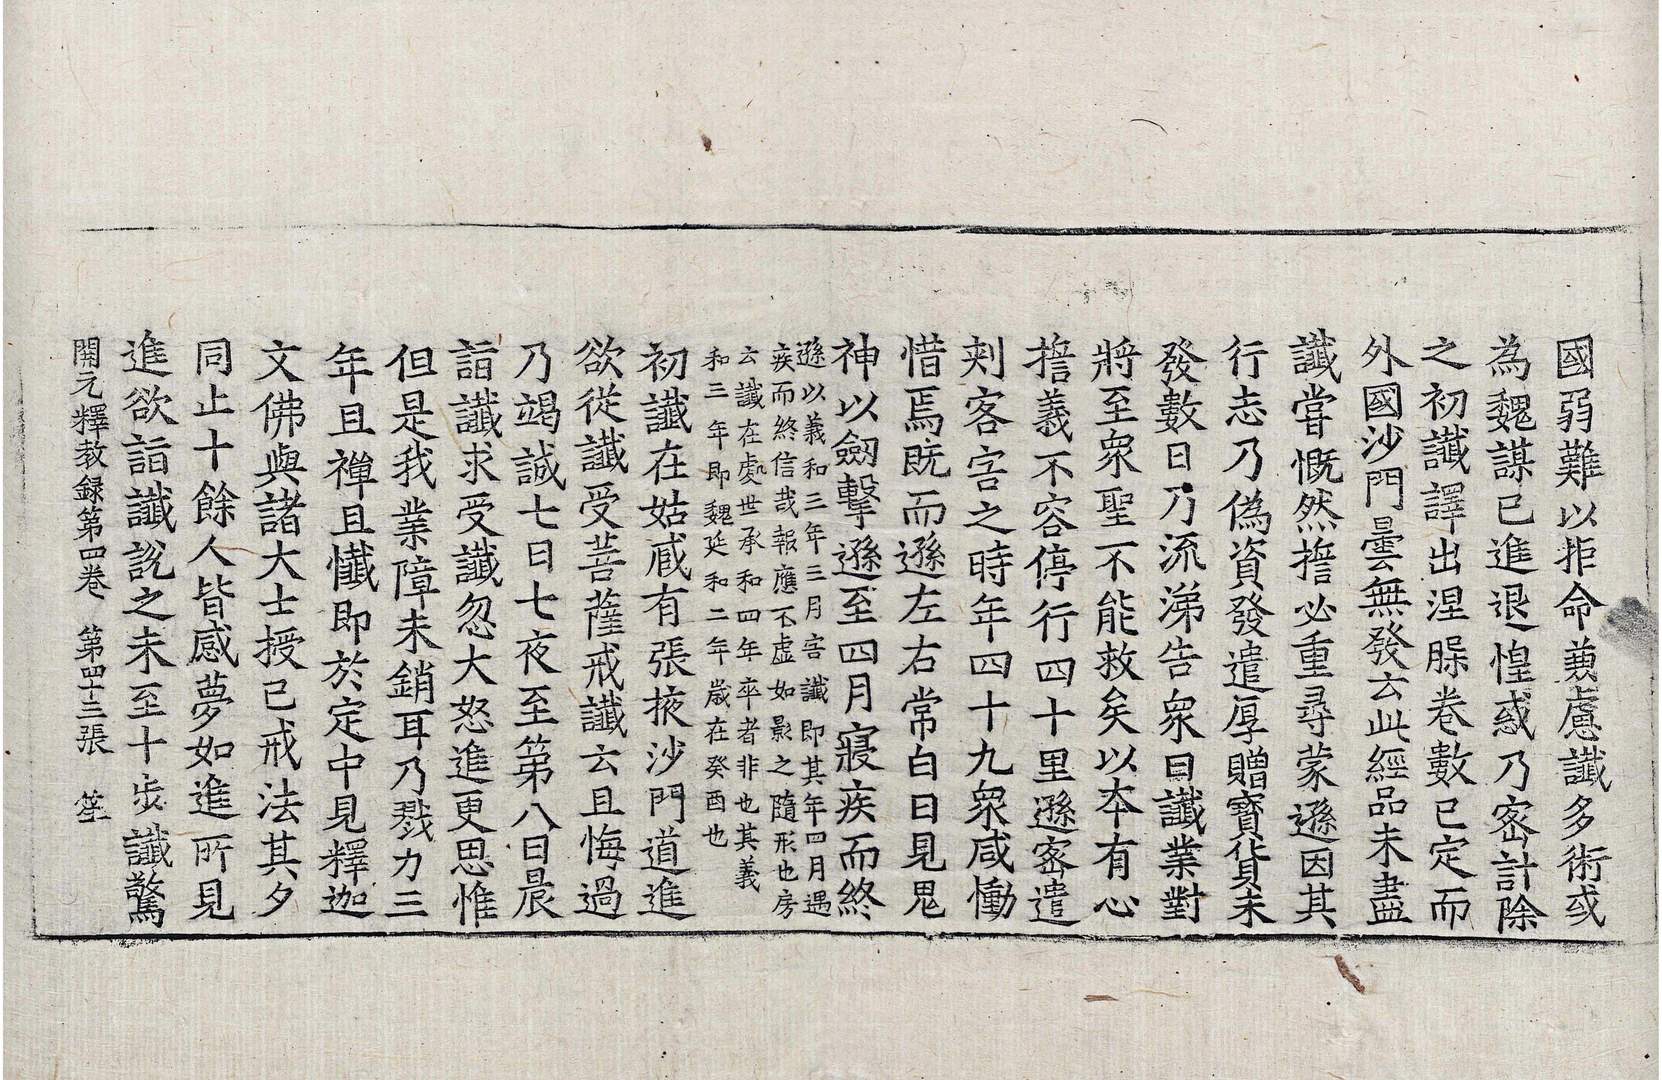 國弱難以拒命兼慮讖多術或
為魏謀已進退惶惑乃密計除
之初讖譯出涅槃卷數已定而
外國沙門曇無發云此經品未盡
讖嘗慨然擔必重尋蒙遜因其
行志乃偽資發遣厚贈寶貨未
發數日乃流涕告衆曰讖業對
將至衆聖不能救矣以本有心
擔義不容停行四十里遜密遣
刺客害之時年四十九衆咸慟
惜焉既而遜左右常白日見鬼
神以劒擊遜至四月寢疾而終
遜以義和三年三月害讖即其年四月遇
疾而終信哉報應不虛如影之隨形也房
云讖在處世承和四年卒者非也其義
和三年即魏延和二年歲在癸酉也
初讖在姑臧有張掖沙門道進
欲從讖受菩薩戒讖云且悔過
乃竭誠七日七夜至第八日晨
詣讖求受讖忽大怒進更思惟
但是我業障未銷耳乃戮力三
年且禪且懺即於定中見釋迦
文佛與諸大士授己戒法其夕
同止十餘人皆感夢如進所見
進欲詣讖說之未至十步讖驚
開元釋教録第四卷 第四十三張 笙